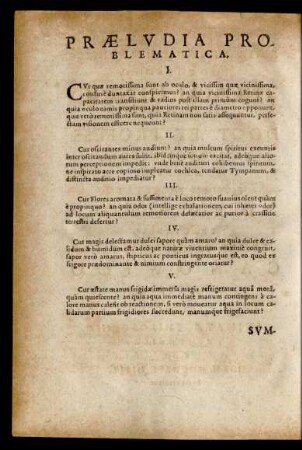 PRÆLVDIA PRO-
BLEMATICA.
I.
CVr quæ remotissima sunt ab oculo, & vicissim quæ vicinissima,
confusè
an quia vicinissima Retinæ ca-
pacitatem transiliunt & radios post illam primùm cogunt? an
quia oculo nimis propinqua pauciores recipit res è diametro oppositos,
quæ verò remotissima sunt, quia Retinam non satis assequuntur, perfe-
ctam visionem efficere nequeunt?
II.
Cur oscitantes minus audiunt? an quia multum spiritus exeuntis
inter oscitandum
aures subit,
soni
perceptionem impedit: unde benè audituri cohibemus spiritum,
ne inspirato aere copioso impleatur cochlea, tendatur Tympanum, &
distincta auditio impediatur?
III.
Cur Flores aromata & suffimenta è loco remoto suavius olent quàm
è propinquo? an quia odor (intellige exhalationem, cui inhæret odor)
ad locum aliquantulum remotiorem delatus
à crassitie
terrestri desertur?
IV.
Cur magis delectamur dulci sapore quàm amaro? an quia dulce &
calidum & humidum est, adeoque naturæ viventium maximè congruit,
sapor verò amarus, stypticus ac ponticus ingratusque est, eò quod ex
frigore prædominante & nimium constringente oriatur?
V.
Cur æstate manus frigidæ immersa magis refrigeratur aquâ motâ,
quàm quiescente? an quia aqua immediatè manum contingens à ca-
lore manus calescit ob reactionem, si verò moveatur aqua in locum ca-
lidarum partium frigidiores succedunt, manumque frigefaciunt?
SVM-